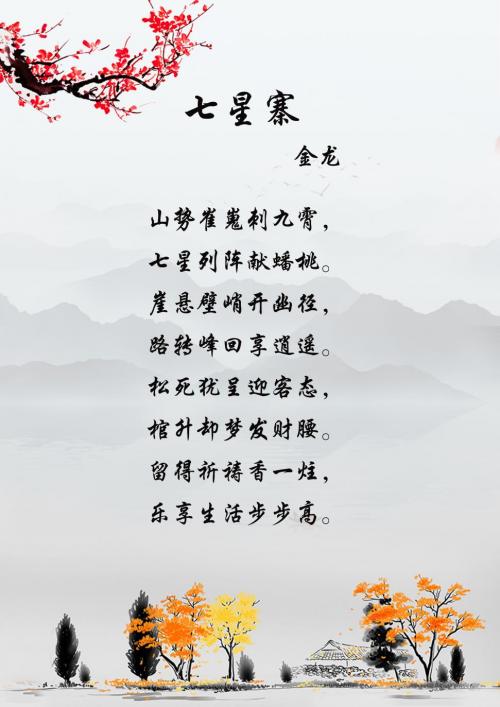 七星寨
金龙
山势崔嵬刺九霄，
七星列阵献蟠桃。
崖悬壁峭开幽径，
路转峰回享逍遥。
松死犹呈迎客态，
棺升却梦发财腰。
留得祈祷香一炷，
乐享生活步步高。